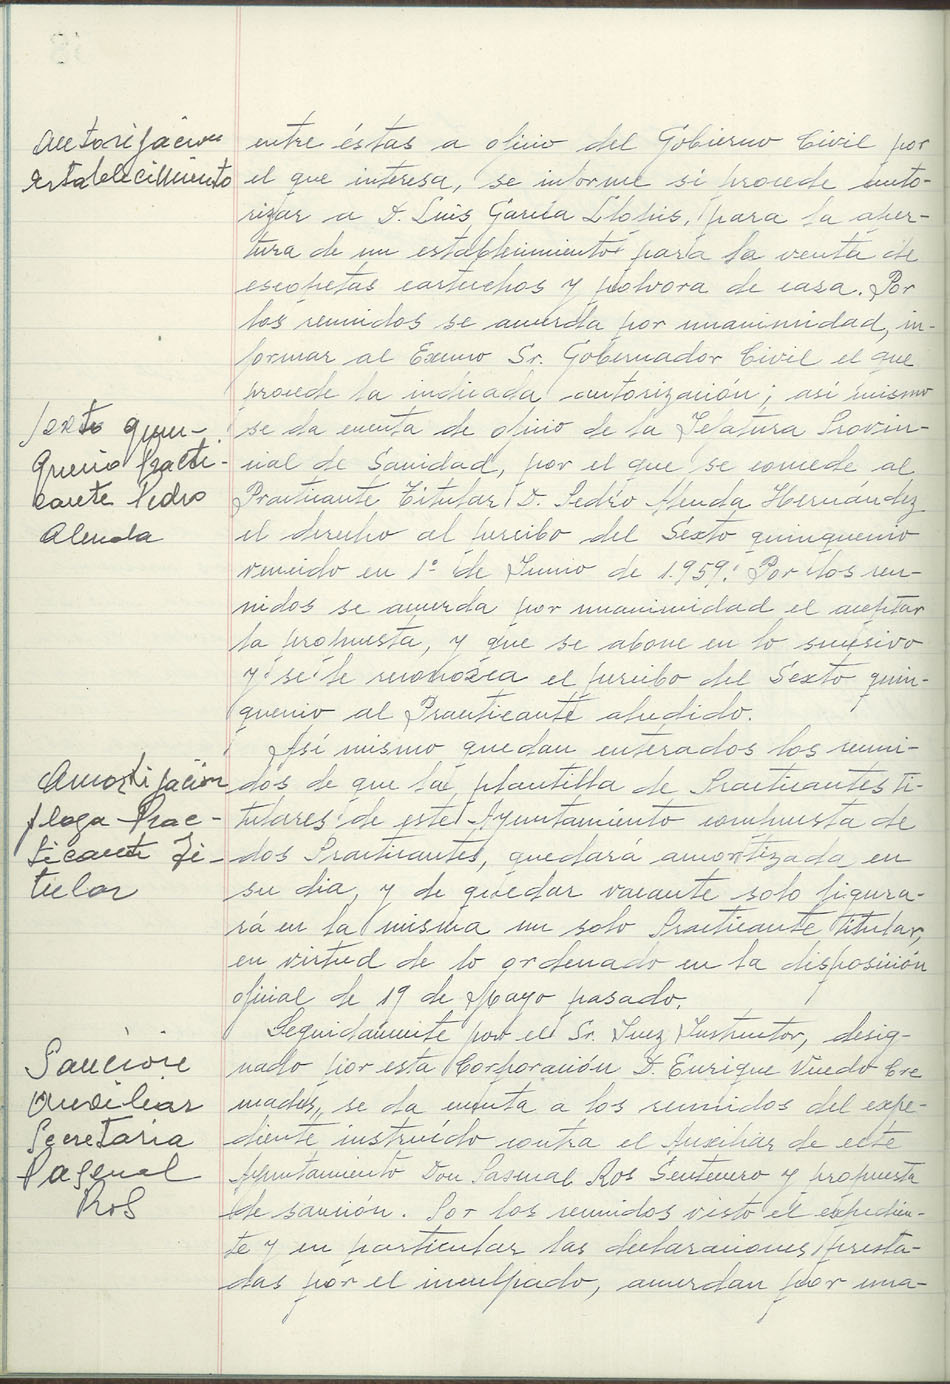 Autorización
establecimiento
entre éstas a oficio del Gobierno Civil por
el que interesa, se informe si procede auto-
rizar a D. Luis García Llobis, para la aber-
tura de un establecimiento para la venta de
escopetas cartuchos y pólvora de caza. Por
los reunidos se acuerda por unanimidad, in-
formar al Excmo Sr. Gobernador Civil el que
procede la indicada autorización; así mismo
Sexto quin-
quenio Practi-
cante Pedro
Alenda
se da cuenta de oficio de la Jefatura Provin-
cial de Sanidad, por el que se concede al
Practicante Titular D. Pedro Alenda Hernandez
el derecho al percibo del Sexto quinquenio
vencido en 1º de Junio de 1.959. Por los reu-
nidos se acuerda por unanimidad el aceptar
la propuesta, y que se abone en lo sucesivo
y se le reconozca el percibo del Sexto quin-
quenio al Practicante aludido.
Amortización
plaza Prac-
ticante Ti-
tular
Así mismo quedan enterados los reuni-
dos de que la plantilla de Practicantes ti-
tulares de este Ayuntamiento compuesta de
dos Practicantes, quedará amortizada en
su dia, y de quedar vacante solo figura-
rá en la misma un solo Practicante titular,
en virtud de lo ordenado en la disposición
oficial de 19 de Mayo pasado.
Sancione
Auxiliar
Secretaria
Pasqual
Ros
Seguidamente por el Sr. Juez Instructor, desig-
nado por esta Corporación D. Enrique Vuedo Cre
mades, se da cuenta a los reunidos del expe-
diente instruído contra el Auxiliar de este
Ayuntamiento Don Pascual Ros Sentenero y propuesta
de sanción. Por los reunidos visto el expedien-
te y en particular las declaraciones presta-
das por el inculpado, acuerdan por una-